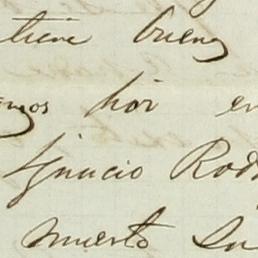 tiene buena
mos hoi en
Ignacio Rod
muerto Sa